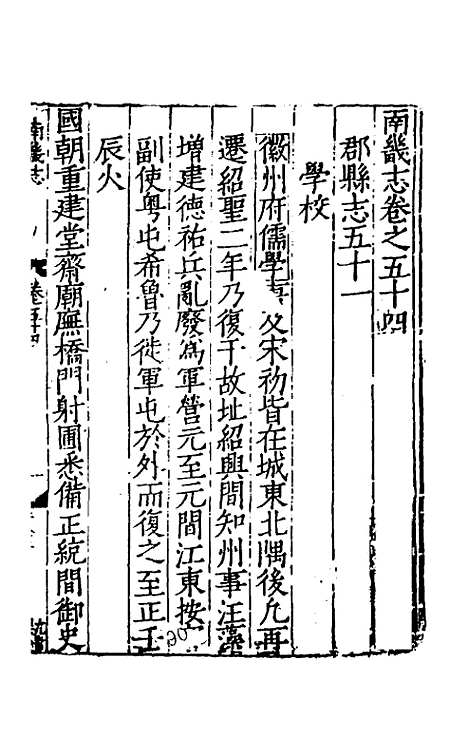 南畿志卷之五十四
郡縣志五十一
學校
徽州府儒學 及宋初皆在城東北隅後凡再
遷紹聖二年乃復于故址紹興間知州事汪藻
增建德祐兵亂廢爲軍營元至元間江東按
副使粤屯希魯乃徙軍屯於外而復之至正壬
辰火
國朝重建堂齋廟廡橋門射圃悉備正統間御史
南畿志
卷五十四
20